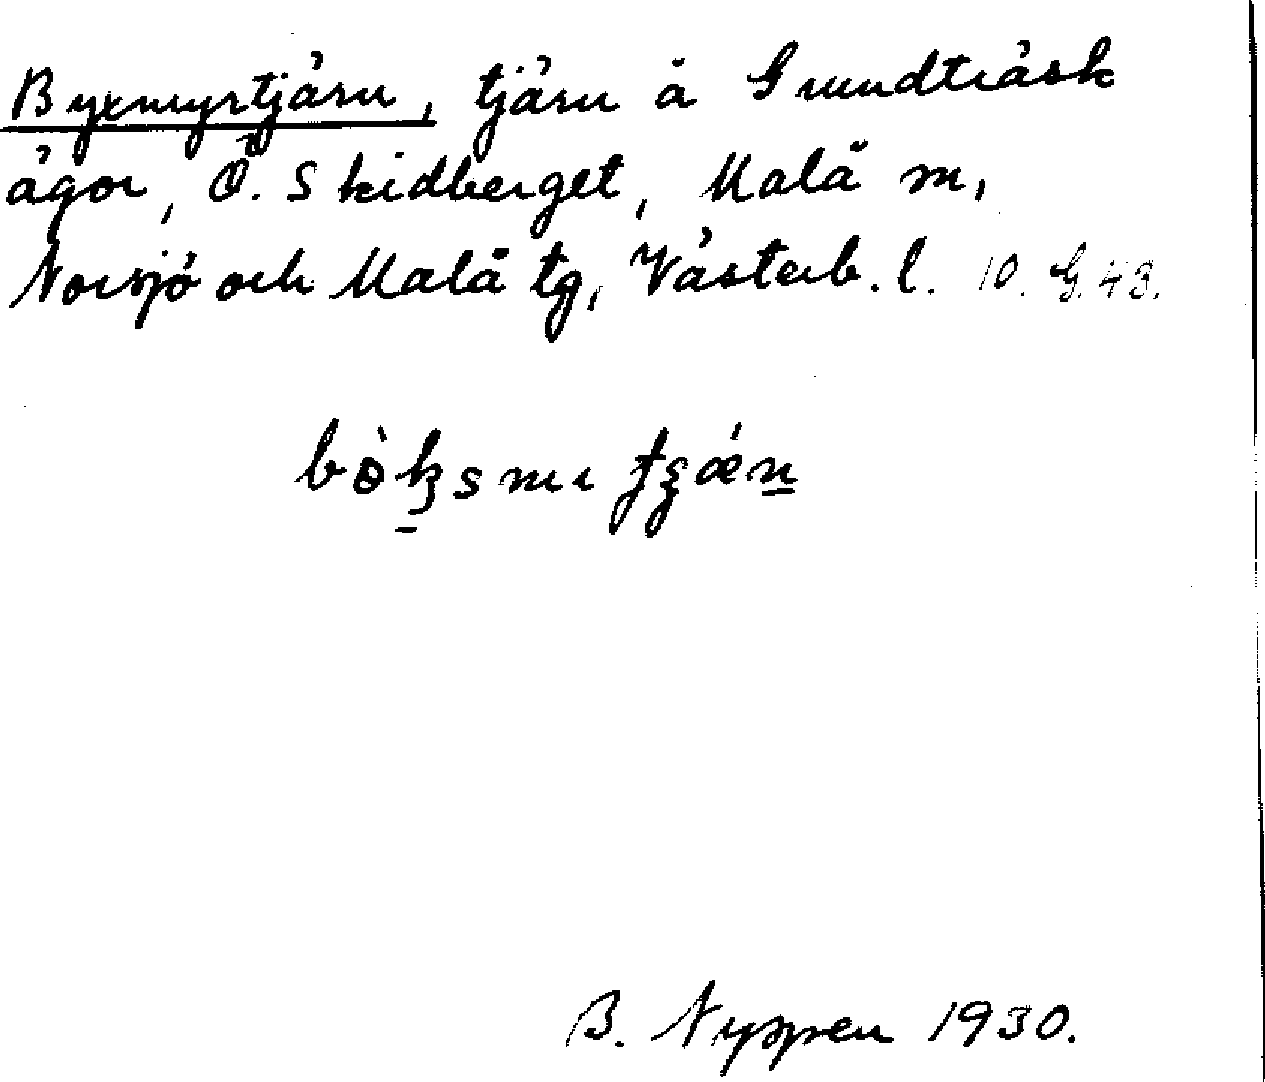 Byxmyrtjärn, tjärn å Grundträsk
ägor, Ö. Skidberget, Malå m,
Norsjö och Malå tg, Västerb. l. 10. G. 43.
B. Nyppen 1930.